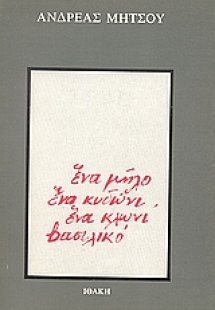 ΑΝΔΡΕΑΣ ΜΗΤΣΟΥ
ἕνα μῆλο
ἕνα κυδῶνι,
ἕνα κλωνι
βασιλικό
ΙΘΑΚΗ